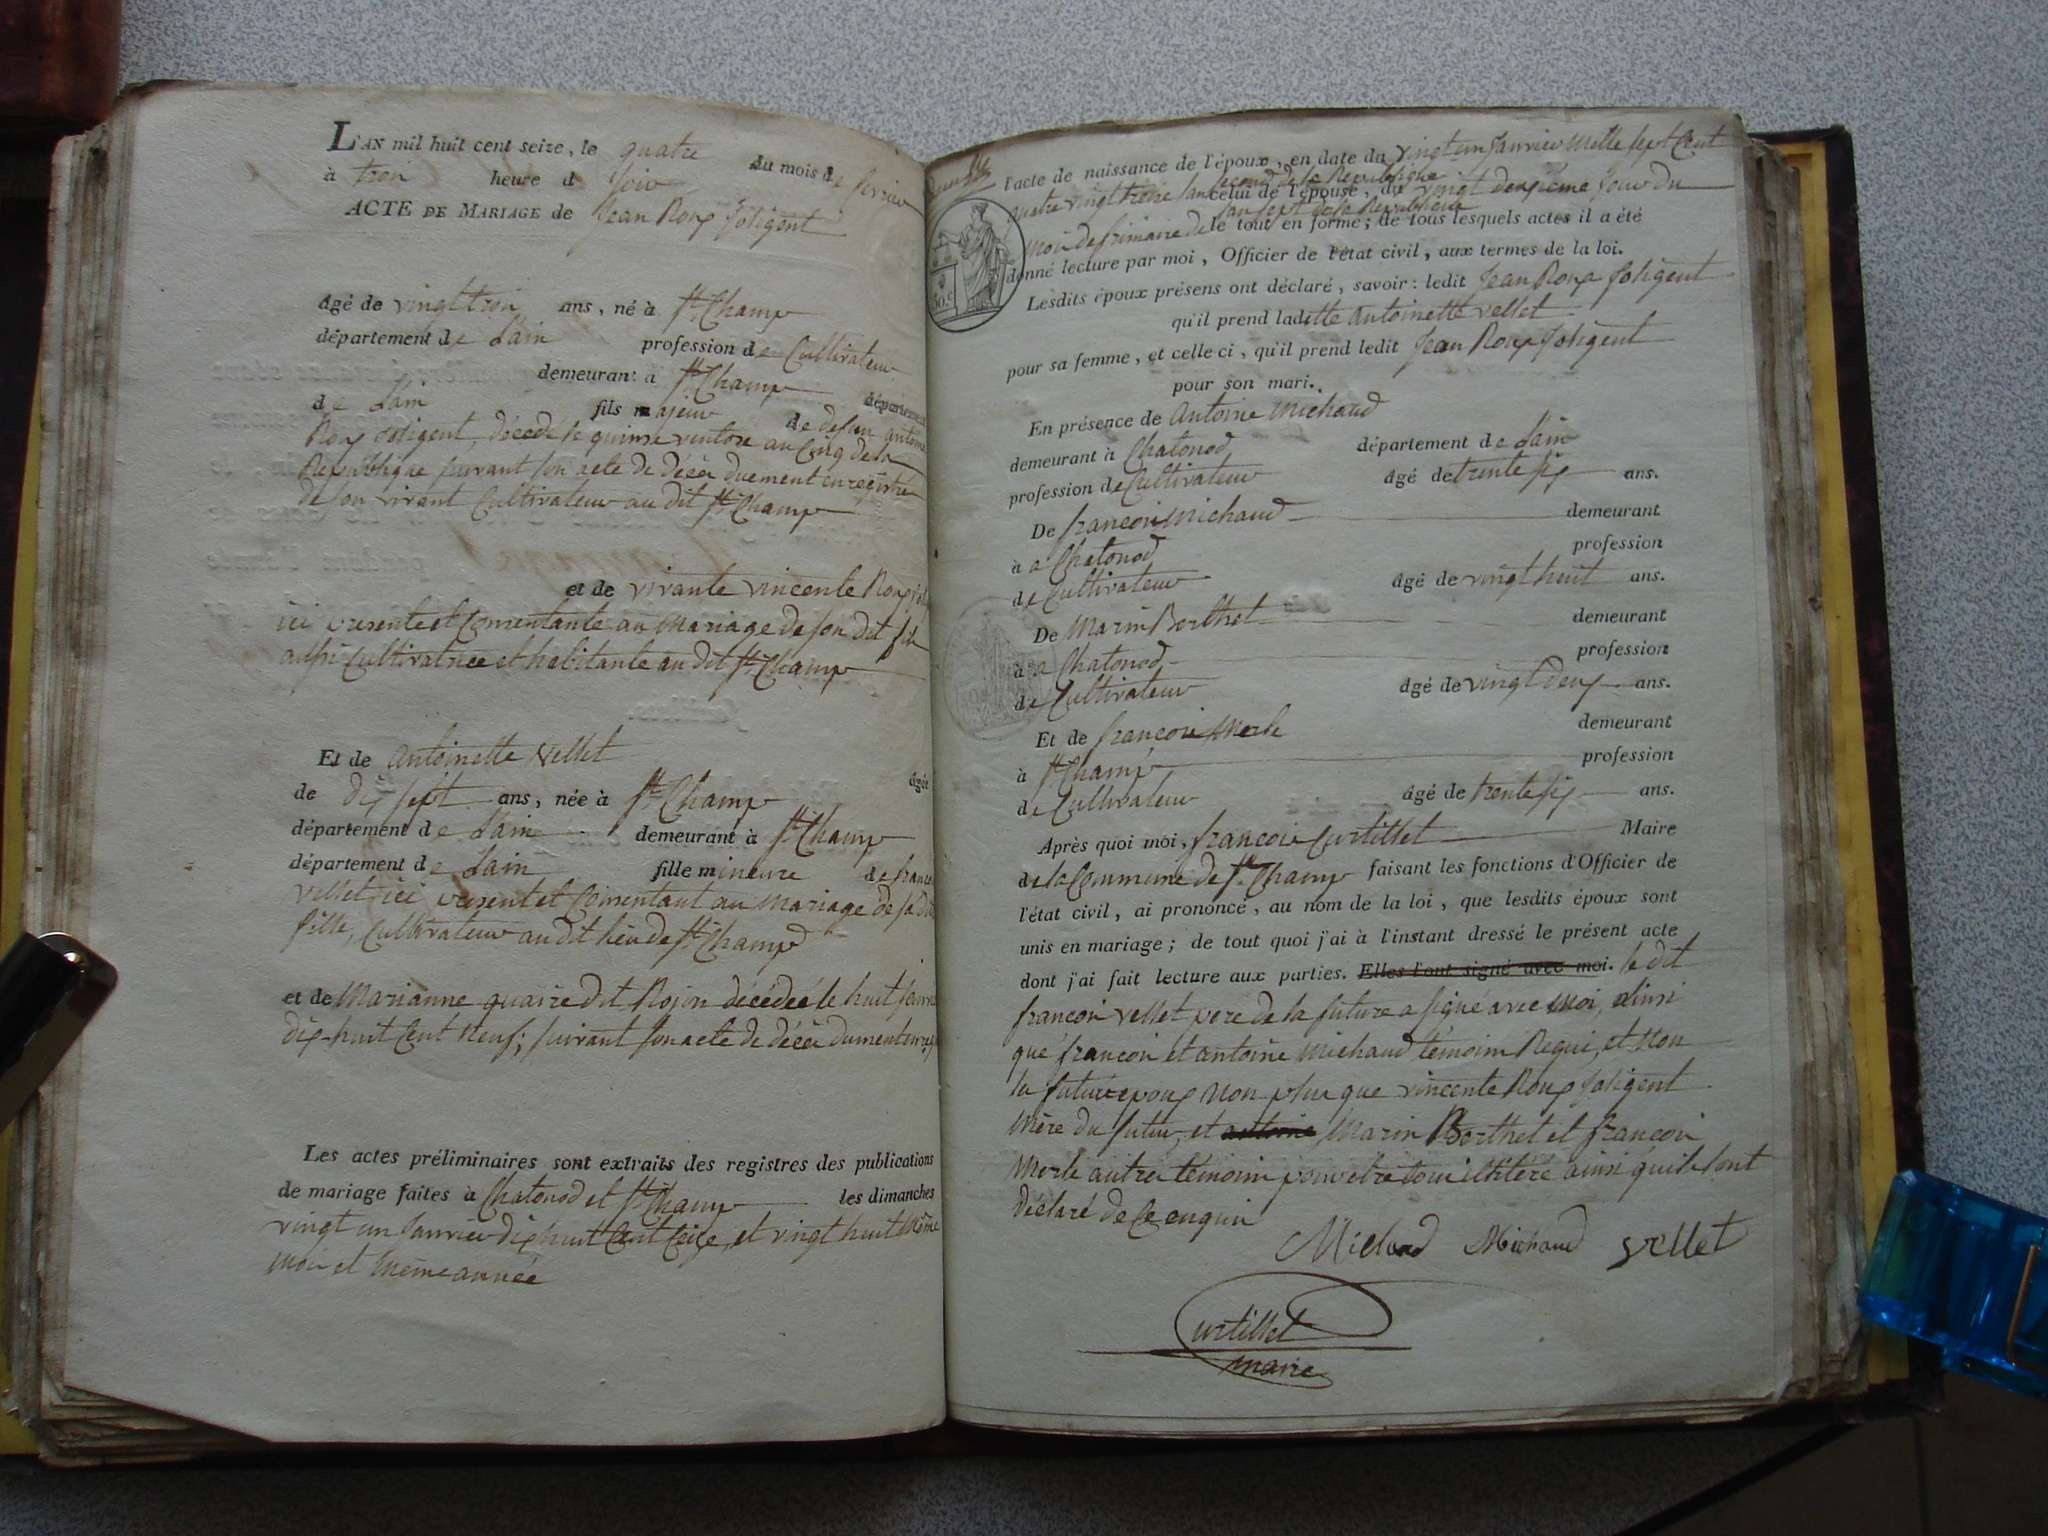 L'AN mil huit cent seize, le quatre du mois de fevrier
à troi heure d soir
ACTE DE MARIAGE de Jean Roux Joligent
âgé de vingt troi ans, né à St. Champ
département de Lain profession de Cultivateur
demeurant à St. Champ département
de Lain fils majeur de defun antoine
Roux Joligent, décédé le quinze ventose an Cinq de la
Republique suivant son acte de décès duement enregistré
de son vivant Cultivateur au dit St. Champ
et de vivante vincente Roux
ici presente et Consentante au mariage de son dit fils
aussi Cultivatrice et habitante au dit St. Champ
Et de Antoinette Vellet âgée
de dix sept ans, née à St. Champ
département de Lain demeurant à St. Champ
département de Lain fille mineure de francoi
vellet ici present et Consentant au mariage de sa dite
fille, Cultivateur au dit lieu de St. Champ
et de Marianne quaire dit Rojon décédeé le huit janvier
dix-huit Cent Neuf; suivant son acte de décès dument
Les actes préliminaires sont extraits des registres des publications
de mariage faites à Chatonod et St. Champ les dimanches
vingt un Janvier dix huit Cent Seize, et vingt huit même
moi et meme année
l'acte de naissance de l'époux, en date du vingt un Janvier mille sept Cent
quatre vingt treize lan second de la Republique celui de l'épouse, du vingt deuxieme jour du
moi de frimaire de lan sept de la Republique le tout en forme; de tous lesquels actes il a été
donné lecture par moi, Officier de l'état civil, aux termes de la loi.
Lesdits époux présens ont déclaré, savoir: ledit Jean Roux Joligent
qu'il prend ladette Antoinette vellet
pour sa femme, et celle ci, qu'il prend ledit Jean Roux Joligent
pour son mari.
En présence de Antoine Michaud
demeurant à Chatonod département de Lain
profession de Cultivateur âgé de trente six ans.
De francoi Michaud demeurant
à a Chatonod profession
de Cultivateur âgé de vingt huit ans.
De Marin Berthet demeurant
à a Chatonod profession
de Cultivateur âgé de vingt deux ans.
Et de francoi Merle demeurant
à St. Champ profession
de Cultivateur âgé de trente six ans.
Après quoi moi, francoi Curtillet Maire
de la Commune de St. Champ faisant les fonctions d'Officier de
l'état civil, ai prononcé, au nom de la loi, que lesdits époux sont
unis en mariage; de tout quoi j'ai à l'instant dressé le présent acte
dont j'ai fait lecture aux parties. Elles l'ont signé avec moi. le dit
francoi vellet pere de la future a signé avec Moi, ainsi
que francoi et antoine Michaud temoins Requi, et Non
la future epoux Non plus que vincente Roux Joligent
Mère du futur, et antoine Marin Berthet et francoi
Merle autre témoin pour etre tous illiteré ainsi quils l'ont
déclaré de Ce enquis
Michaud Michaud vellet
Curtillet
maire